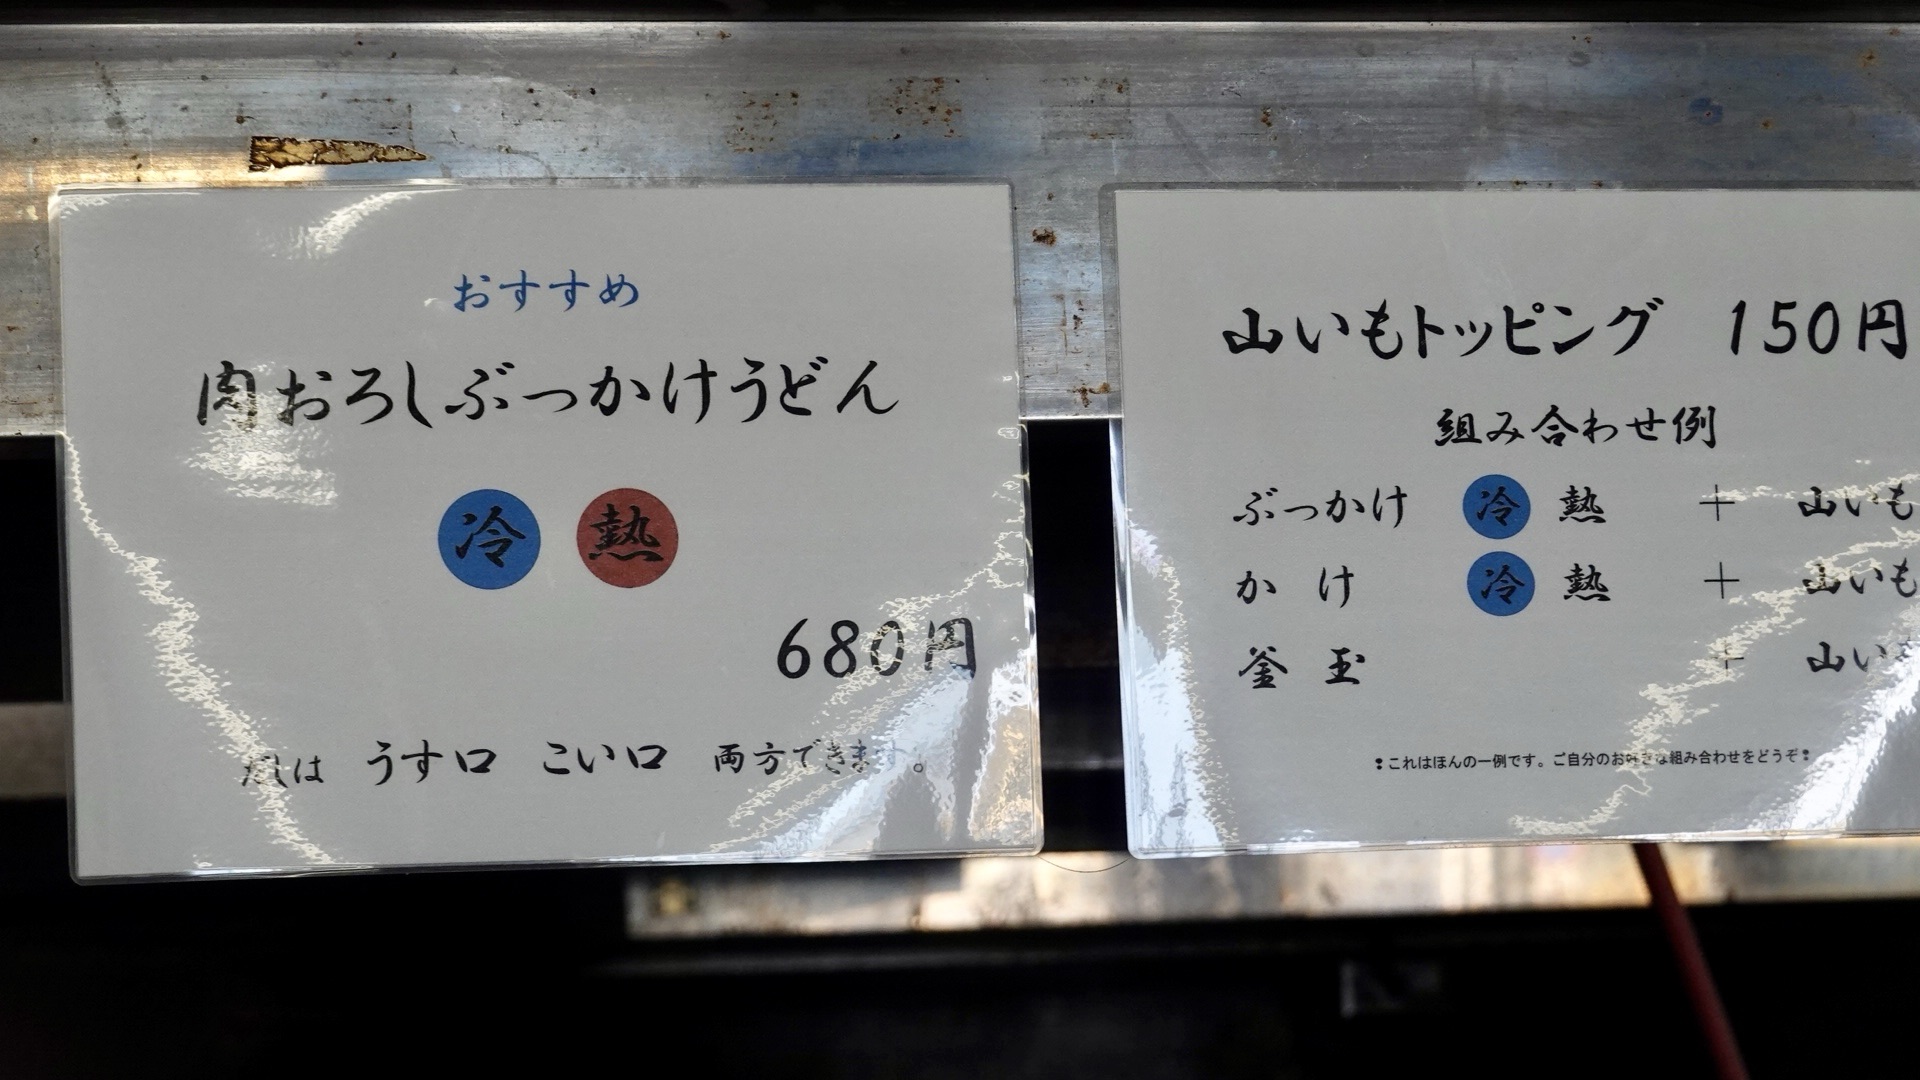 おすすめ
肉おろしぶっかけうどん
冷 熱
680円
は うす口 こい口 両方できます。
山いもトッピング 150円
組み合わせ例
ぶっかけ 冷 熱 + 山いも
かけ 冷 熱 + 山いも
釜玉 + 山い
❢これはほんの一例です。ご自分のお好きな組み合わせをどうぞ❢